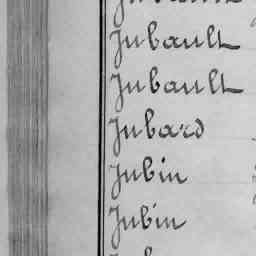 Jubault
Jubault
Jubard
Jubin
Jubin